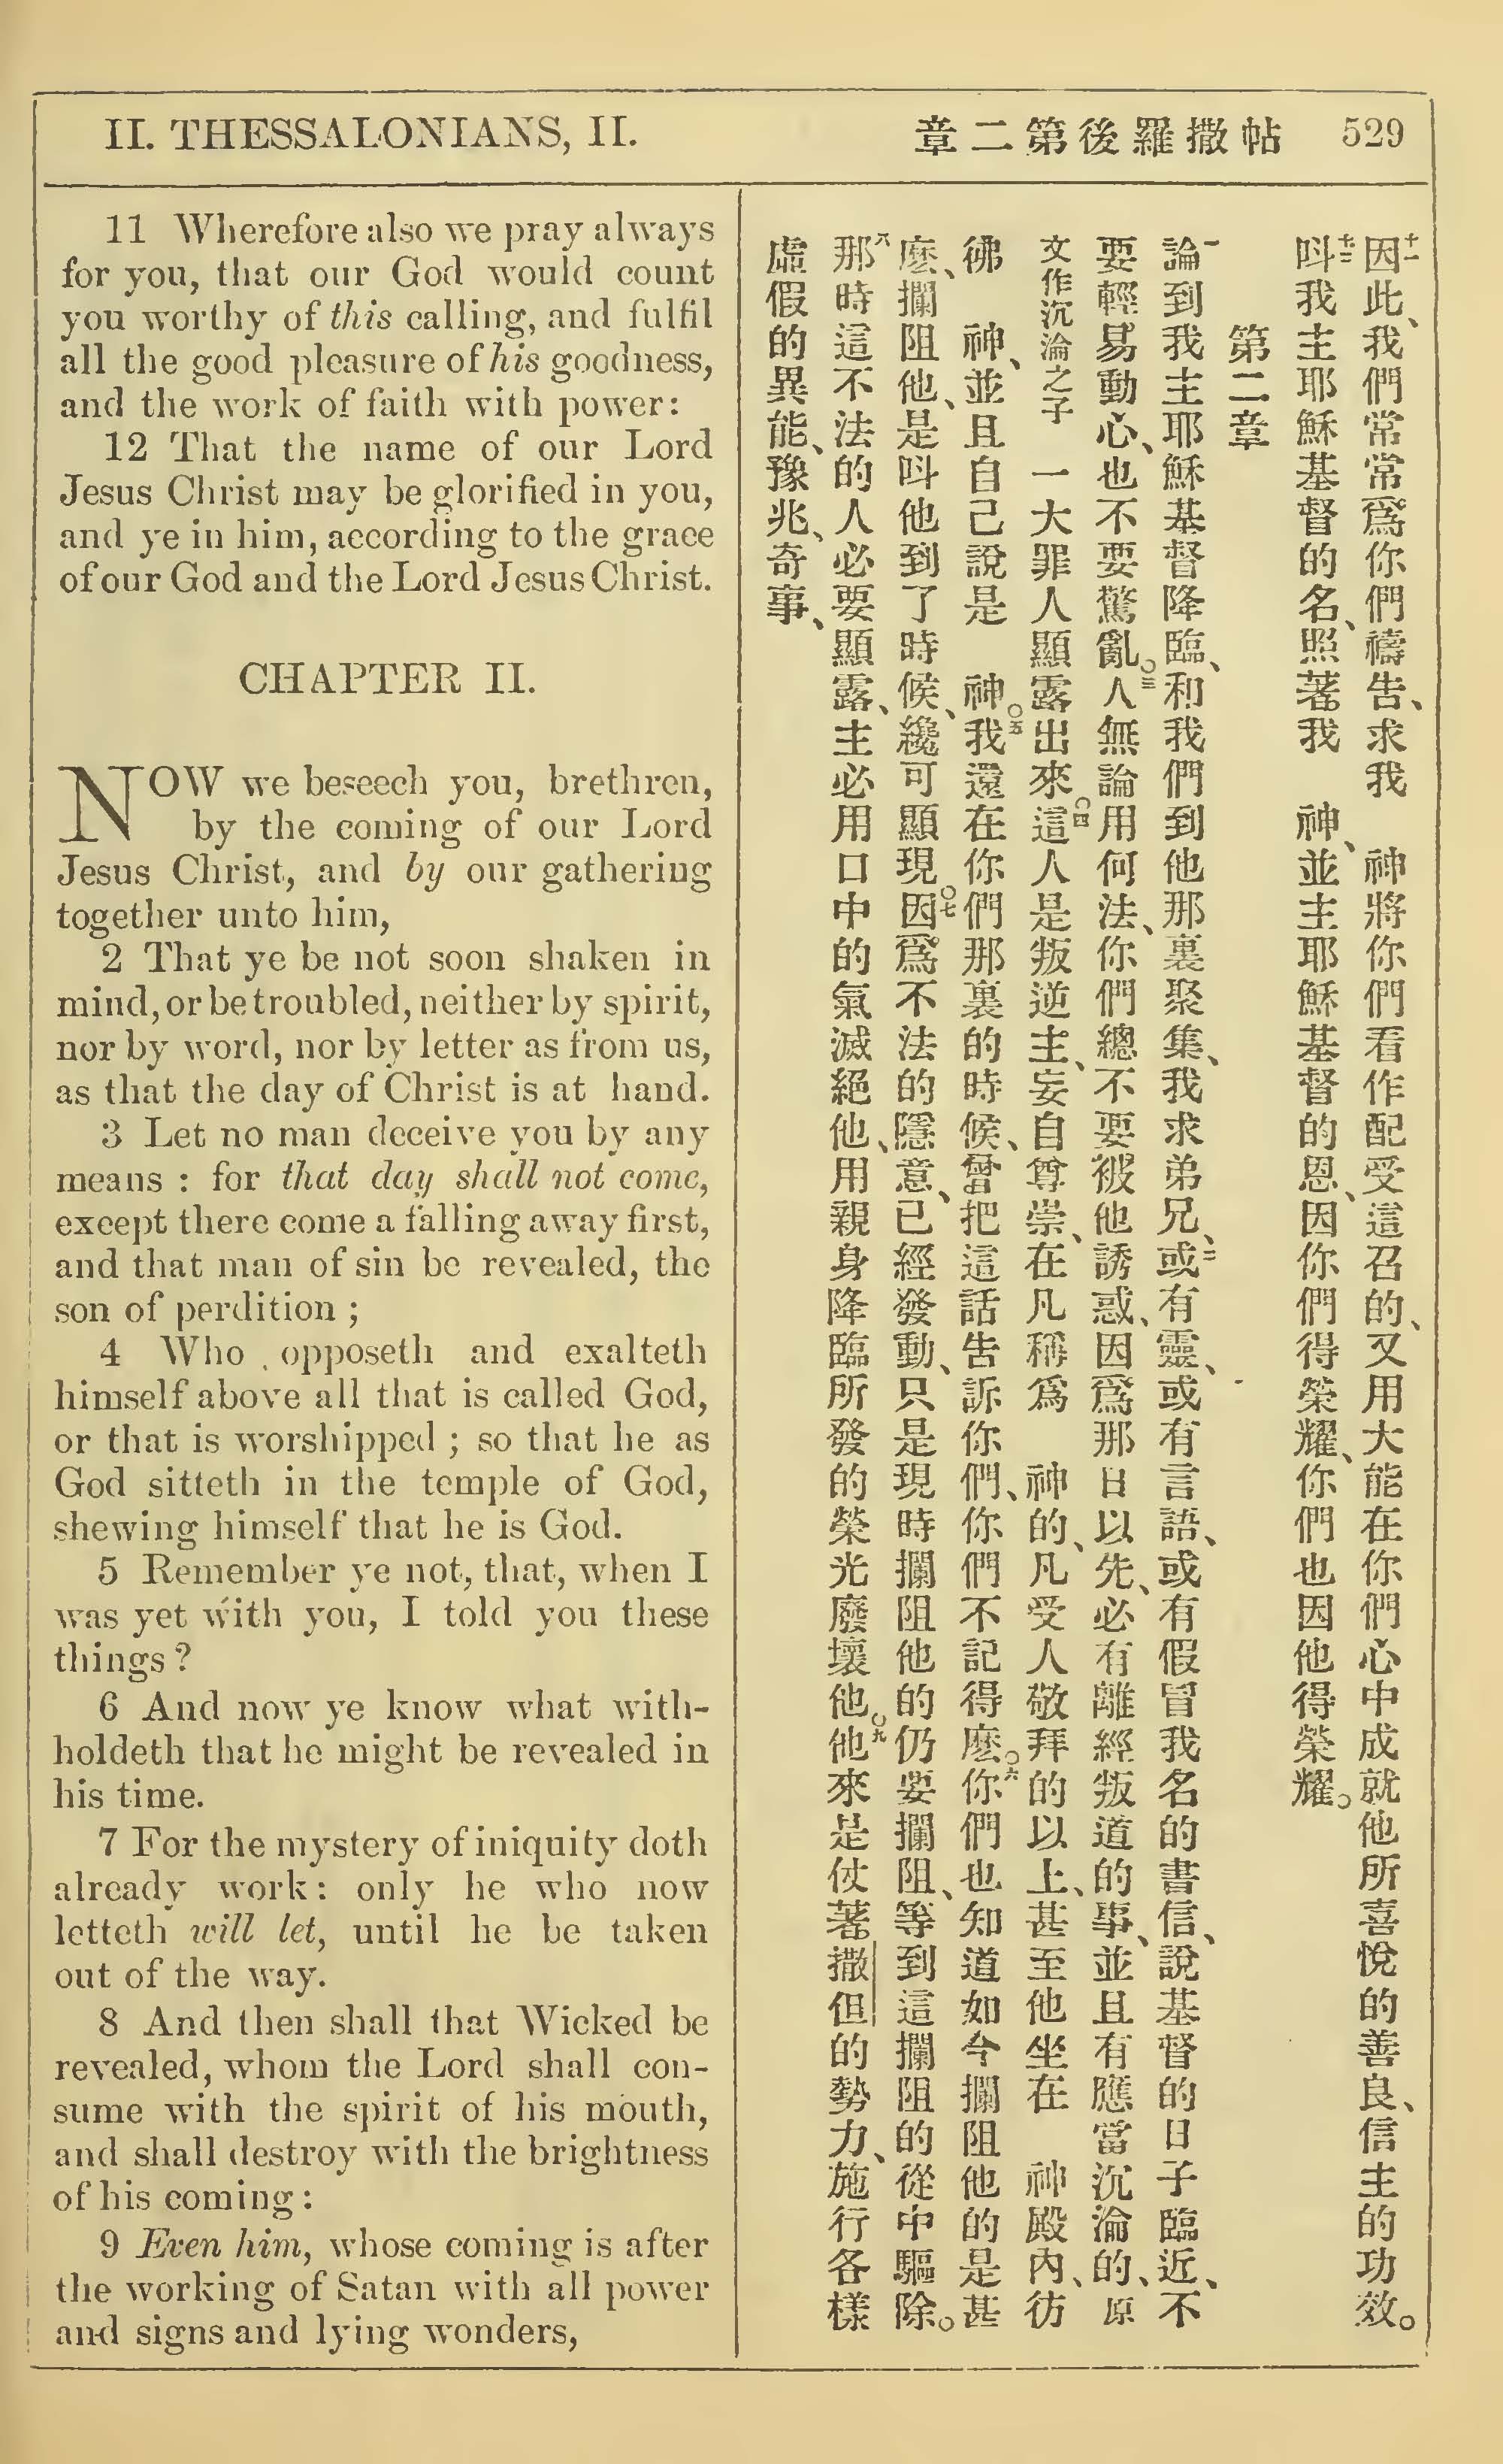 II. THESSALONIANS, II.
章二第後羅撒帖 529
11 Wherefore also we pray always
for you, that our God would count
you worthy of this calling, and fulfil
all the good pleasure of his goodness,
and the work of faith with power:
12 That the name of our Lord
Jesus Christ may be glorified in you,
and ye in him, according to the grace
of our God and the Lord Jesus Christ.
CHAPTER II.
NOW we beseech you, brethren,
by the coming of our Lord
Jesus Christ, and by our gathering
together unto him,
2 That ye be not soon shaken in
mind, or be troubled, neither by spirit,
nor by word, nor by letter as from us,
as that the day of Christ is at hand.
3 Let no man deceive you by any
means : for that day shall not come,
except there come a falling away first,
and that man of sin be revealed, the
son of perdition ;
4 Who opposeth and exalteth
himself above all that is called God,
or that is worshipped ; so that he as
God sitteth in the temple of God,
shewing himself that he is God.
5 Remember ye not, that, when I
was yet with you, I told you these
things ?
6 And now ye know what with-
holdeth that he might be revealed in
his time.
7 For the mystery of iniquity doth
already work: only he who now
letteth will let, until he be taken
out of the way.
8 And then shall that Wicked be
revealed, whom the Lord shall con-
sume with the spirit of his mouth,
and shall destroy with the brightness
of his coming:
9 Even him, whose coming is after
the working of Satan with all power
and signs and lying wonders,
十一因此、我們常常爲你們禱告、求我 神將你們看作配受這召的、又用大能在你們心中成就他所喜悅的善良、信主的功效。
十二呌我主耶穌基督的名、照著我 神、並主耶穌基督的恩、因你們得榮耀、你們也因他得榮耀。
第二章
一論到我主耶穌基督降臨、和我們到他那裏聚集、我求弟兄、二或有靈、或有言語、或有假冒我名的書信、說基督的日子臨近、不
要輕易動心、也不要驚亂。○三人無論用何法、你們總不要被他誘惑、因爲那日以先、必有離經叛道的事、並且有應當沉淪的、原
文作沉淪之子 一大罪人顯露出來。○四這人是叛逆主、妄自尊崇、在凡稱爲 神的、凡受人敬拜的以上、甚至他坐在 神殿內、彷
彿 神、並且自己說是 神。○五我還在你們那裏的時候、曾把這話告訴你們、你們不記得麽。○六你們也知道如今攔阻他的是甚
麽、攔阻他、是呌他到了時候、纔可顯現。○七因爲不法的隱意、已經發動、只是現時攔阻他的仍要攔阻、等到這攔阻的從中驅除。
八那時這不法的人必要顯露、主必用口中的氣滅絕他、用親身降臨所發的榮光廢壞他。○九他來是仗著撒但的勢力、施行各樣
虛假的異能、豫兆、奇事、